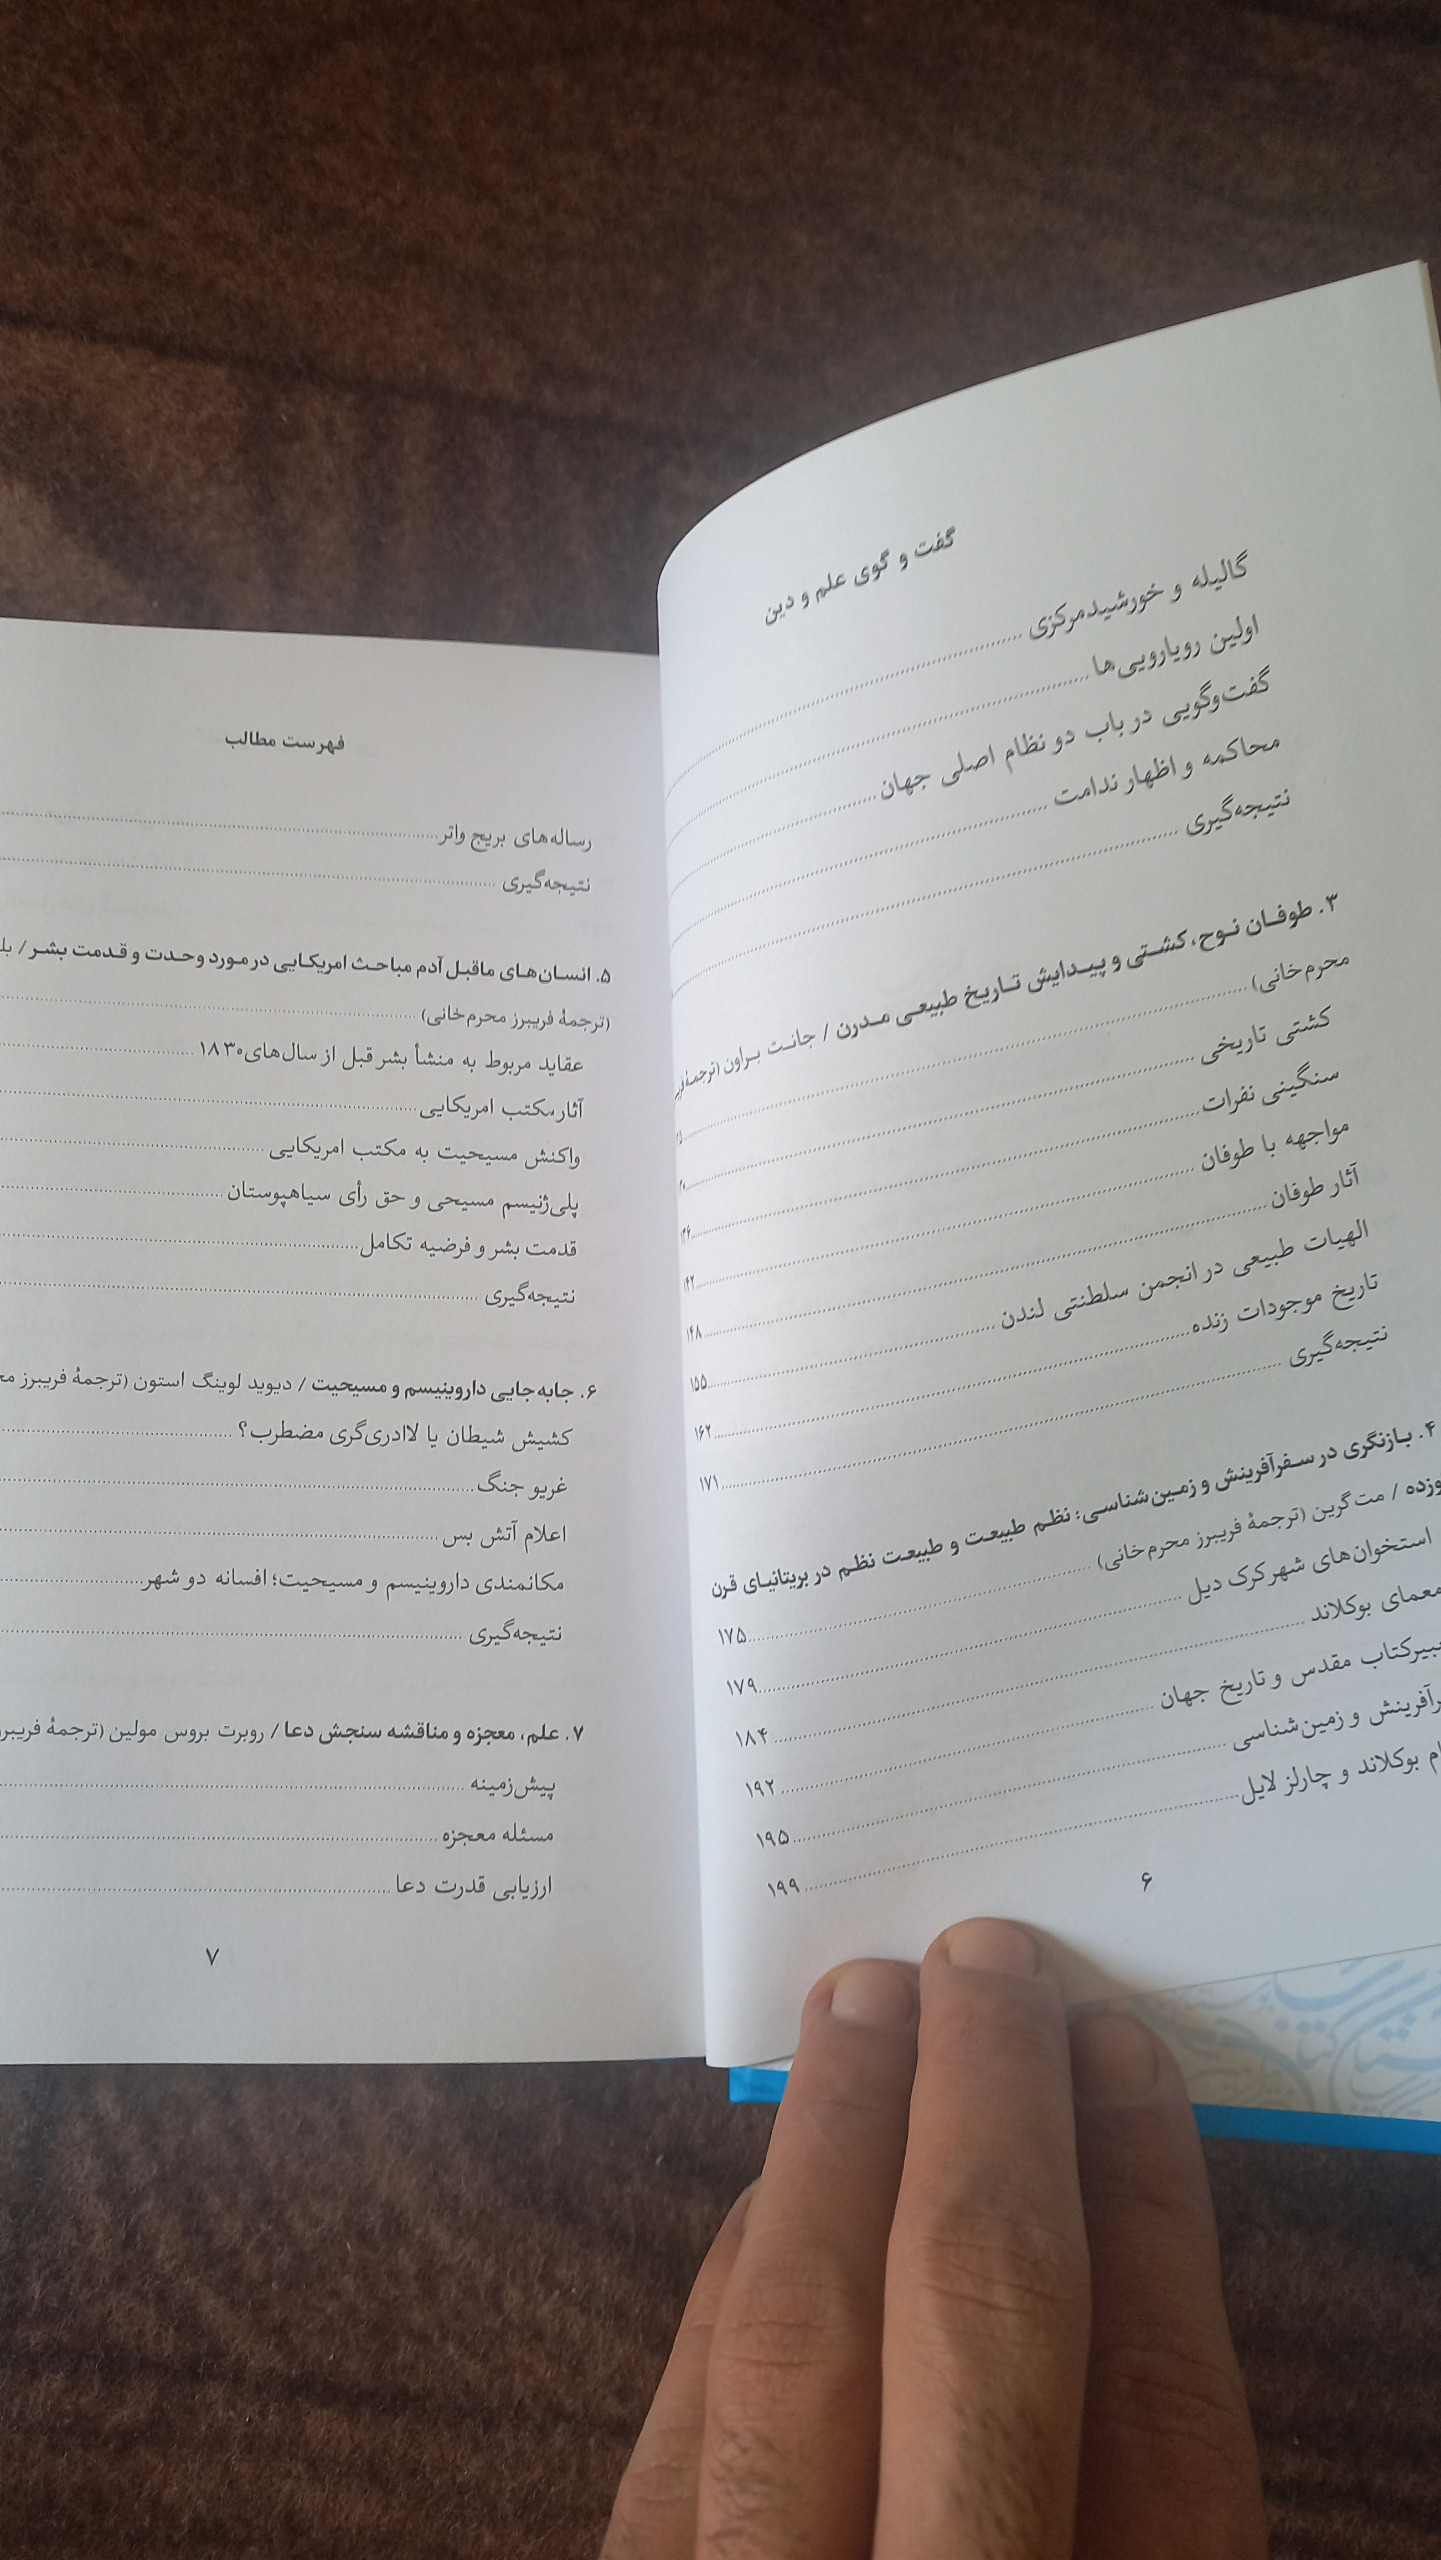 گفت و گوی علم و دین
گالیله و خورشیدمرکزی
اولین رویارویی‌ها
گفت‌وگویی در باب دو نظام اصلی جهان
محاکمه و اظهار ندامت
نتیجه‌گیری
۳. طوفـان نـوح، کشـتی و پیـدایش تـاریخ طبیعـی مـدرن / جانـت بـراون (ترجمهٔ
محرم‌خانی)
کشتی تاریخی
سنگینی نفرات ۱۳۶
مواجهه با طوفان ۱۴۲
آثار طوفان ۱۴۸
الهیات طبیعی در انجمن سلطنتی لندن ۱۵۵
تاریخ موجودات زنده ۱۶۲
نتیجه‌گیری ۱۷۱
۴. بـازنگری در سـفرآفرینش و زمـین‌شناسـی: نظـم طبیعـت و طبیعت نظـم در بریتانیـای قرن
/ مت گرین (ترجمهٔ فریبرز محرم‌خانی) ۱۷۵
استخوان‌های شهر کرک دیل ۱۷۹
معمای بوکلاند ۱۸۴
کتاب مقدس و تاریخ جهان ۱۹۲
و زمین‌شناسی ۱۹۵
بوکلاند و چارلز لایل ۱۹۹
۶
فهرست مطالب
رساله‌های بریج واتر
نتیجه‌گیری
۵. انسـان‌هـای ماقبـل آدم مباحـث امریکـایی در مـورد وحـدت و قـدمت بشـر /
(ترجمهٔ فریبرز محرم‌خانی)
عقاید مربوط به منشأ بشر قبل از سال‌های ۱۸۳۰
آثار مکتب امریکایی
واکنش مسیحیت به مکتب امریکایی
پلی‌ژنیسم مسیحی و حق رأی سیاهپوستان
قدمت بشر و فرضیه تکامل
نتیجه‌گیری
۶. جابه‌جایی داروینیسم و مسیحیت / دیوید لوینگ استون (ترجمهٔ فریبرز
کشیش شیطان یا لاادری‌گری مضطرب؟
غریو جنگ
اعلام آتش بس
مکانمندی داروینیسم و مسیحیت؛ افسانه دو شهر
نتیجه‌گیری
۷. علم، معجزه و مناقشه سنجش دعا / روبرت بروس مولین (ترجمهٔ
پیش‌زمینه
مسئله معجزه
ارزیابی قدرت دعا
۷